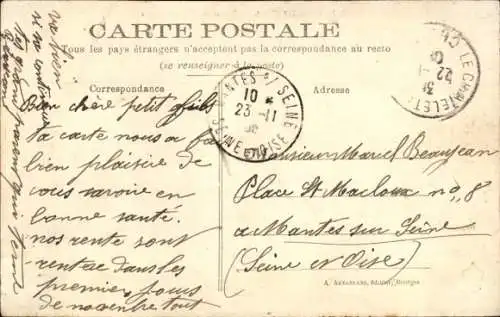 CARTE POSTALE
Tous les pays étrangers n'acceptent pas la correspondance au recto
(se renseigner à la poste)
Correspondance
Adresse
Bien cher petit fils
ta carte nous a fa
bien plaisir de
vous savoir en
bonne santé.
nos rente sont
rentrée dans les
premier jours
de novembre tout
va bien
si ne continue
tes grand parent qui
MANTES S/ SEINE
10
23 -11
SEINE-ET-OISE
LE CHATELET
22
Monsieur Marcel Beaujean
Place St Macloux no, 8
a Mantes sur Seine
(Seine et Oise)
A. Auxenfans, Éditeur, Bourges